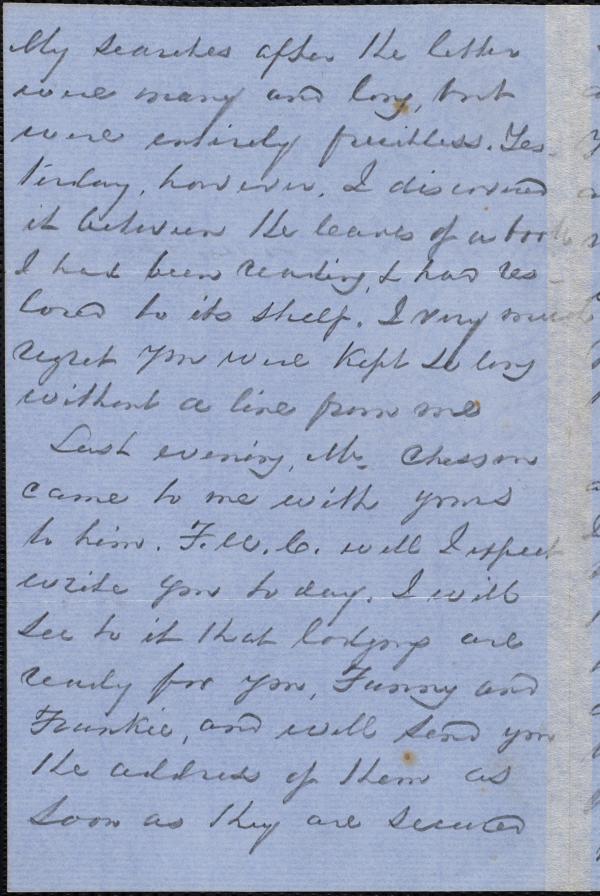 My searches after the letter
were many and long, but
were entirely fruitless. Yes-
terday, however, I discovered
it between the leaves of a book
I had been reading, & had res-
tored to its shelf. I very much
regret you were kept so long
without a line from me
Last evening, Mr. Chesson
came to me with yours
to him. F.W.C. will I expect
write you to day. I will
see to it that lodgings are
ready for you, Fanny and
Frankie, and will send you
the address of them as
soon as they are secured